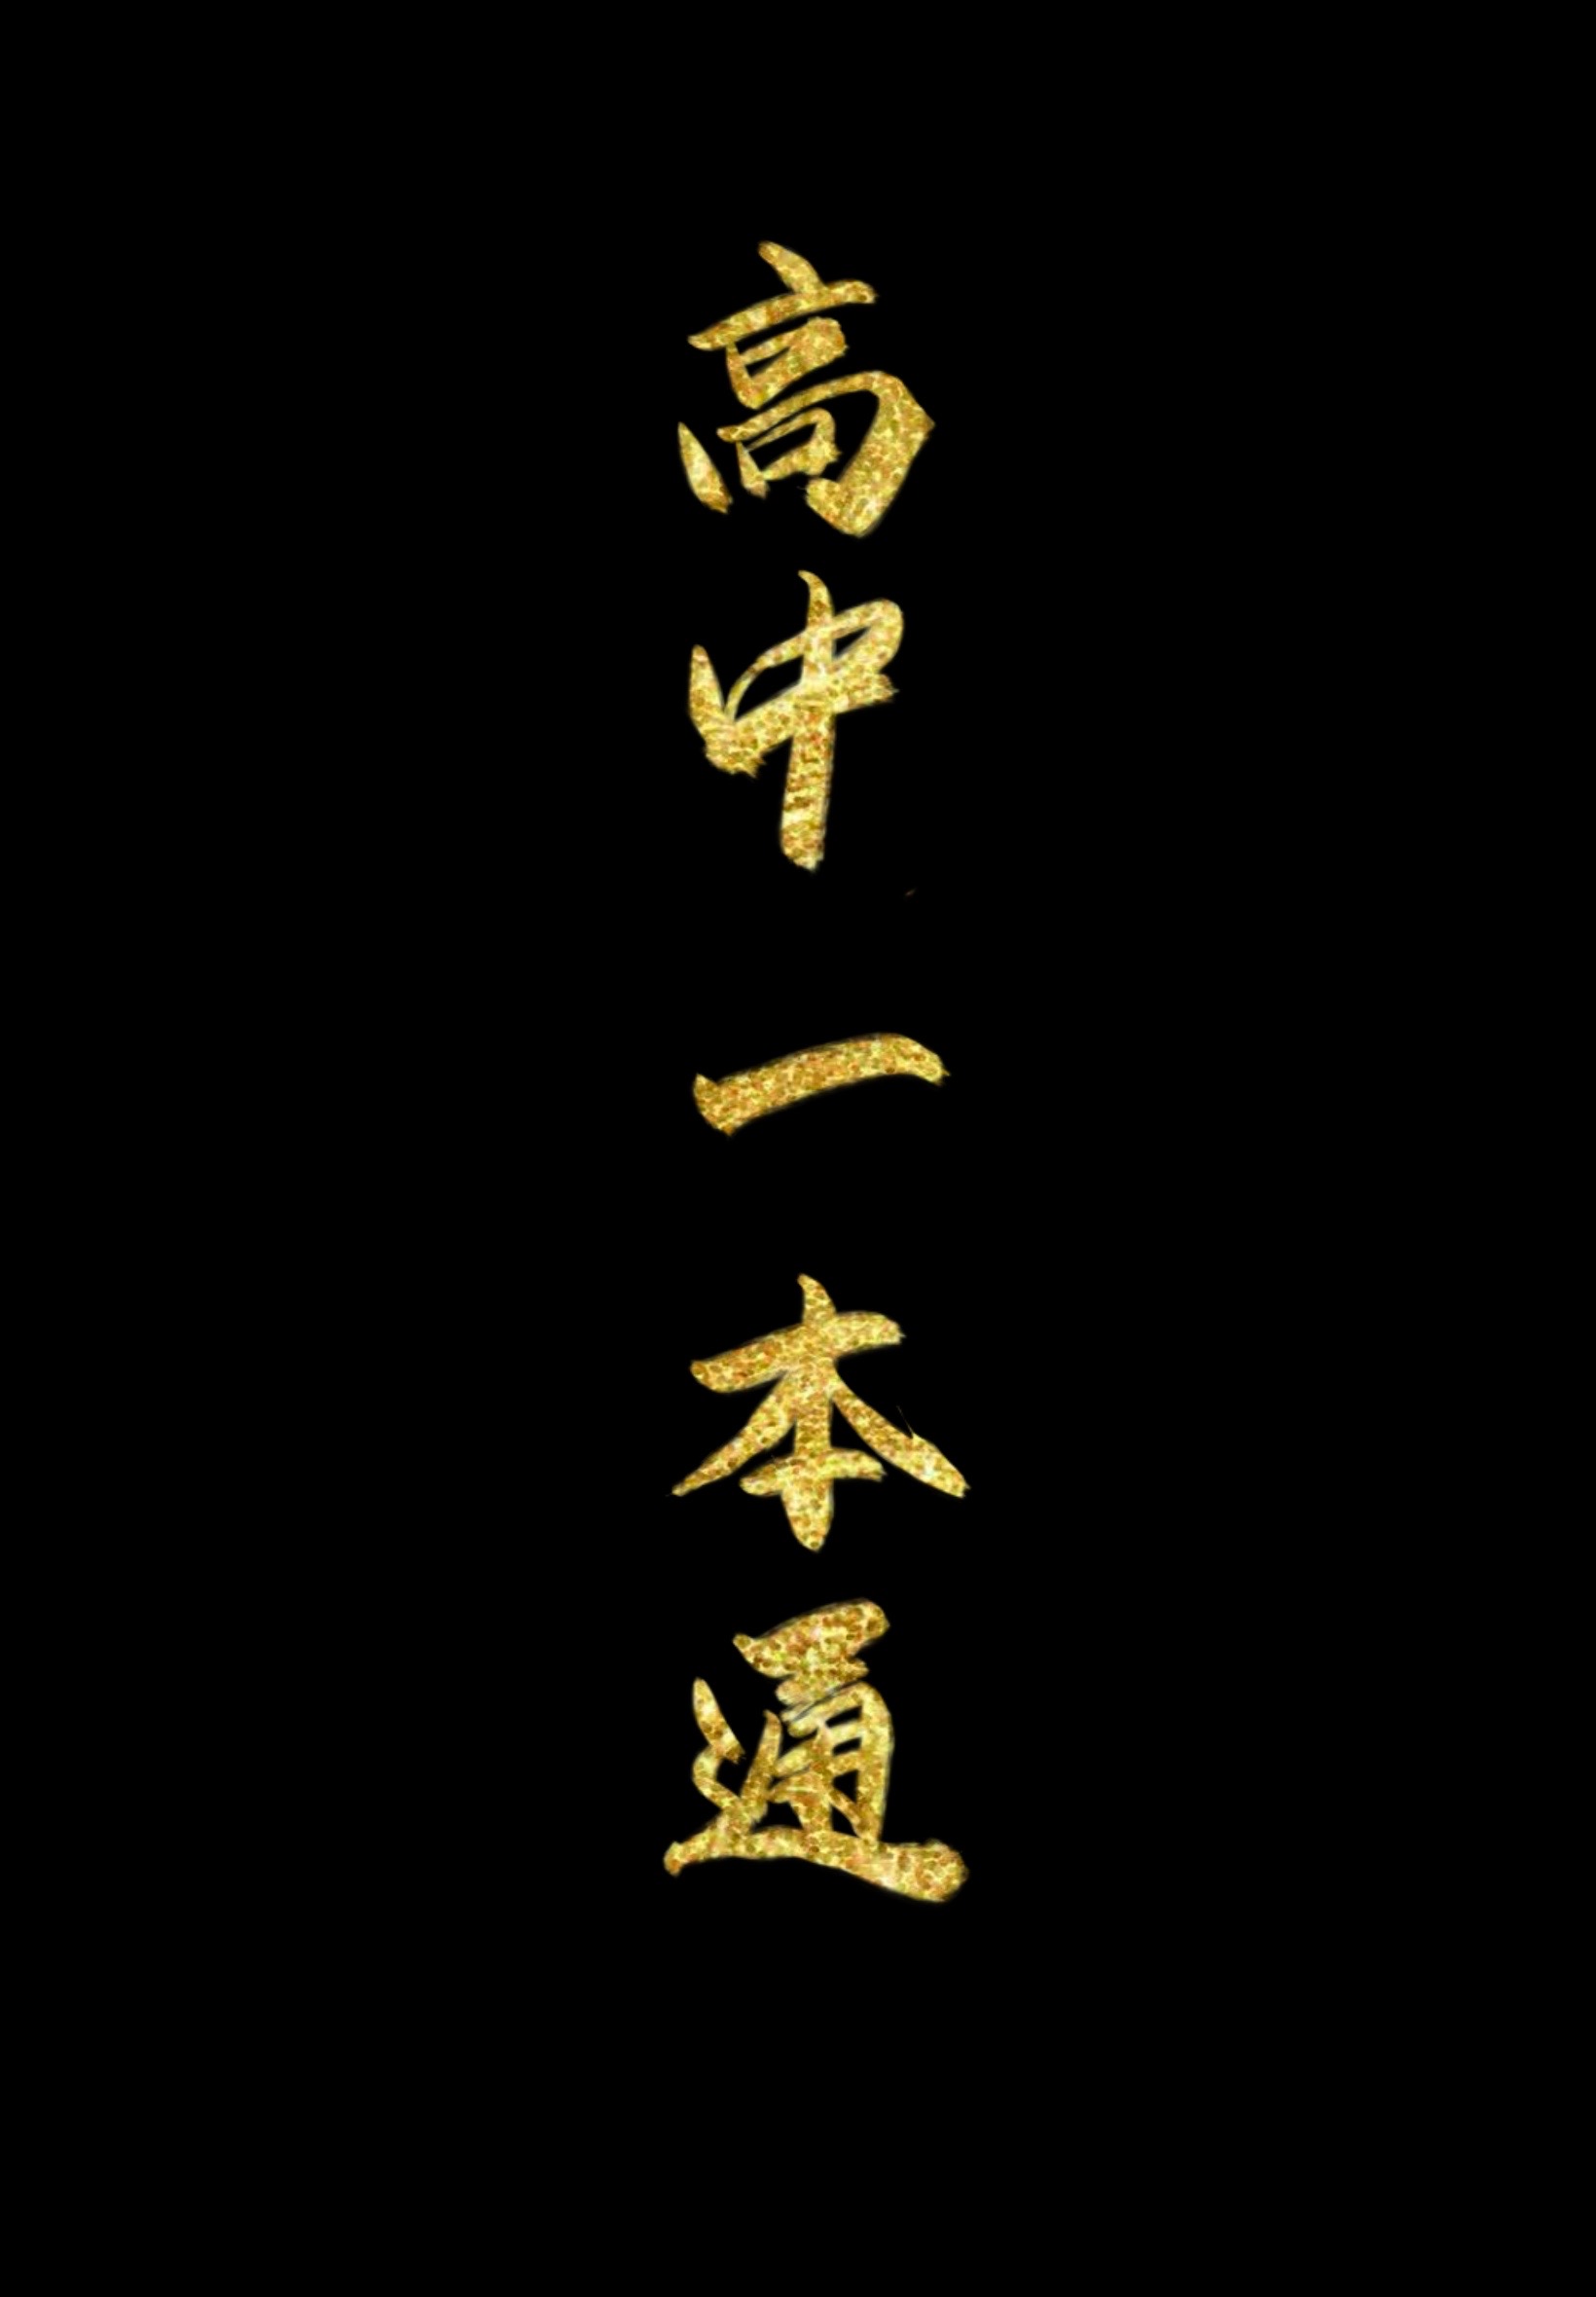 高中一本通